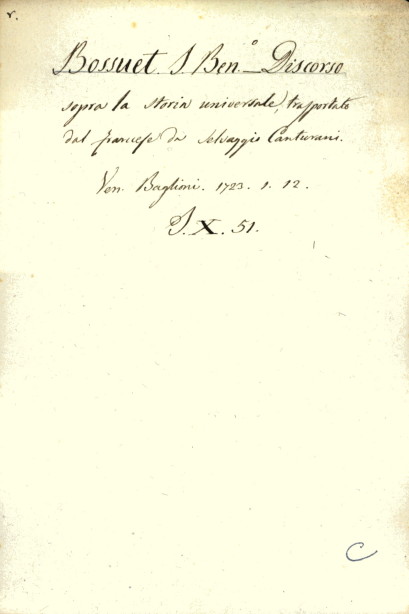 r.
Bossuet J. Ben.º — Discorso
sopra la storia universale, trasportato
dal francese da Selvaggio Canturani.
Ven. Baglioni. 1723. 1. 12.
J. X. 51.
C